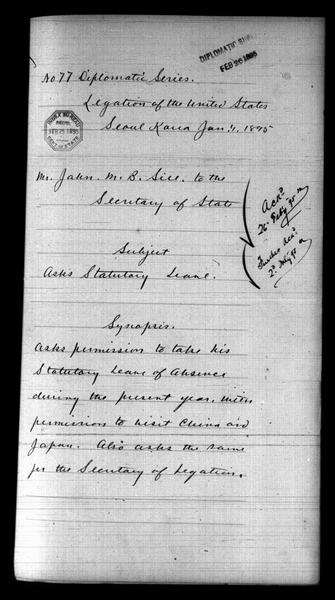 DIPLOMATIC BUREAU
FEB 26 1895
No. 77 Diplomatic Series.
Legation of the United States
Seoul Korea Jan'y 1, 1895
INDEX BUREAU
FEB 25 1895
DEPT. OF STATE
Mr. John. M. B. Sill. to the
Secretary of State
Ackd
26 Feby 95
Further Ack
Subject
Asks Statutory Leave.
Synopsis.
Asks permission to take his
Statutory Leave of Absence
during the present year, with
permission to visit China and
Japan. Also asks the same
for the Secretary of Legation.